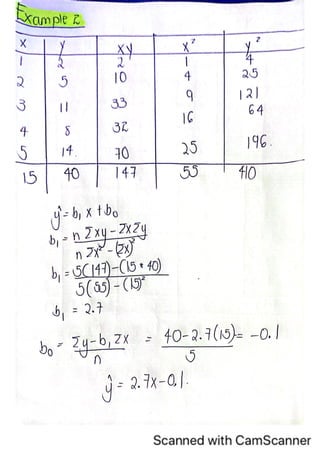 Example 2
x y xy x² y²
1 2 2 1 4
2 5 10 4 25
3 11 33 9 121
4 8 32 16 64
5 14. 70 25 196.
15 40 147 55 410
ŷ = b₁ x + b₀
b₁ = n Σxy - Σx Σy / n Σx² - (Σx)²
b₁ = 5(147) - (15 * 40) / 5(55) - (15)²
b₁ = 2.7
b₀ = Σy - b₁ Σx / n = 40 - 2.7(15) / 5 = -0.1
ŷ = 2.7x - 0.1.
Scanned with CamScanner